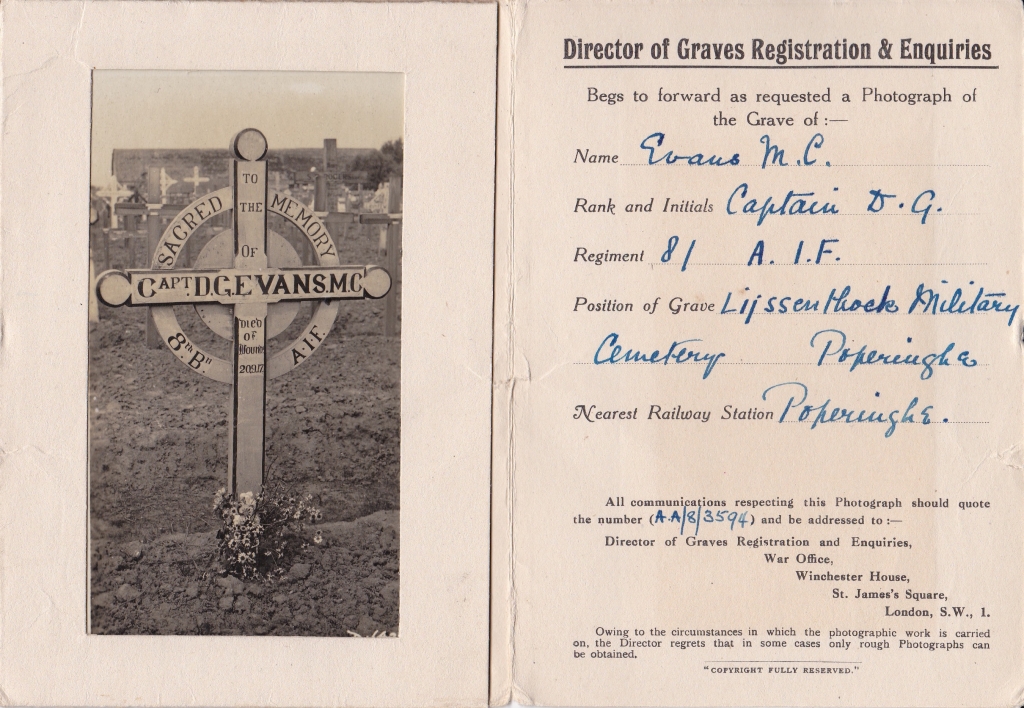 SACRED
TO
THE
MEMORY
OF
CAPT. D.G.EVANS.M.C
DIED
OF
Wounds
20.9.17
8TH BN
A.I.F.
Director of Graves Registration & Enquiries
Begs to forward as requested a Photograph of
the Grave of :—
Name Evans M.C.
Rank and Initials Captain D.G.
Regiment 8/ A.I.F.
Position of Grave Lijssenthoek Military
Cemetery Poperinghe
Nearest Railway Station Poperinghe.
All communications respecting this Photograph should quote
the number (A.A/8/3594) and be addressed to :—
Director of Graves Registration and Enquiries,
War Office,
Winchester House,
St. James's Square,
London, S.W., 1.
Owing to the circumstances in which the photographic work is carried
on, the Director regrets that in some cases only rough Photographs can
be obtained.
"COPYRIGHT FULLY RESERVED."